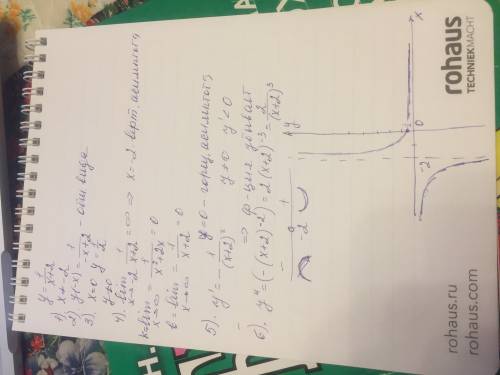 y = 1/(x+2)
1) x ≠ -2
2) y(-x) = 1/(-x+2) - общ. вида
3) x=0 y = 1/2
y≠0
4) lim x→-2 1/(x+2) = ∞ ⇒ x = -2 верт. асимптота,
k = lim x→∞ 1/(x²+2x) = 0
b = lim x→∞ 1/(x+2) = 0
y=0 - гориз. асимптота,
5) y' = - 1/(x+2)² y'≠0 y'<0
⇒ ф-ция убывает
6) y'' = (-(x+2)⁻²)' = 2(x+2)⁻³ = 2/(x+2)³
- + 
-2
y
0
x
-2
rohaus
TECHNIEKMACHT
rohaus.ru
rohaus.com